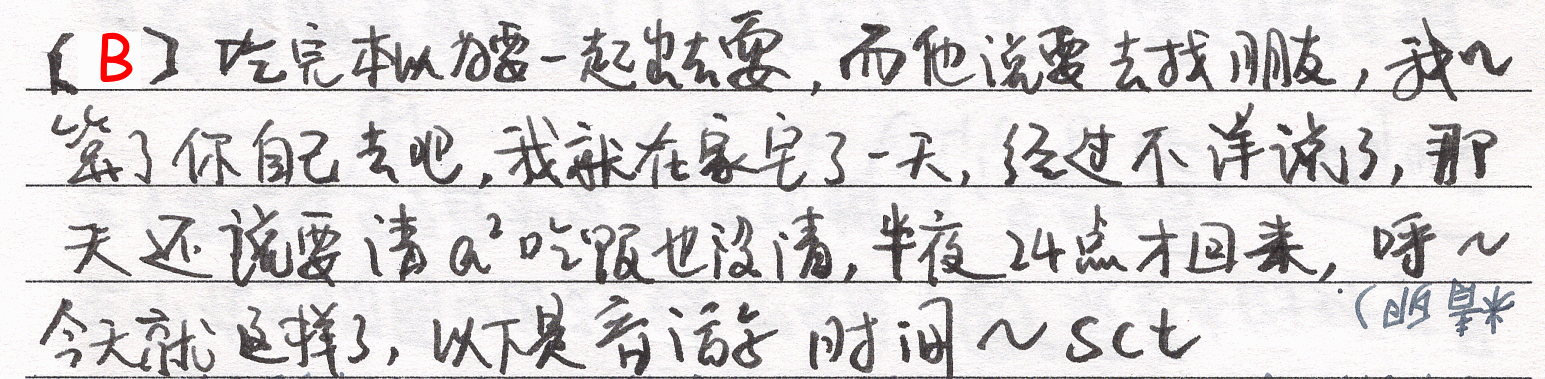 【B】吃完本以为要一起出去耍，而他说要去找朋友，我～
算了你自己去吧，我就在家宅了一天，经过不详说了，那
天还说要请a²吃饭也没请，半夜24点才回来，呼～
今天就这样了，以下是音游时间～sct